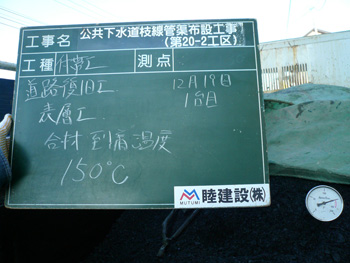 工事名 公共下水道枝線管渠布設工事
(第20-2工区)
工種 付帯工 測点
道路復旧工 12月19日
表層工 1台目
合材到着温度
150℃
MUTUMI 睦建設(株)